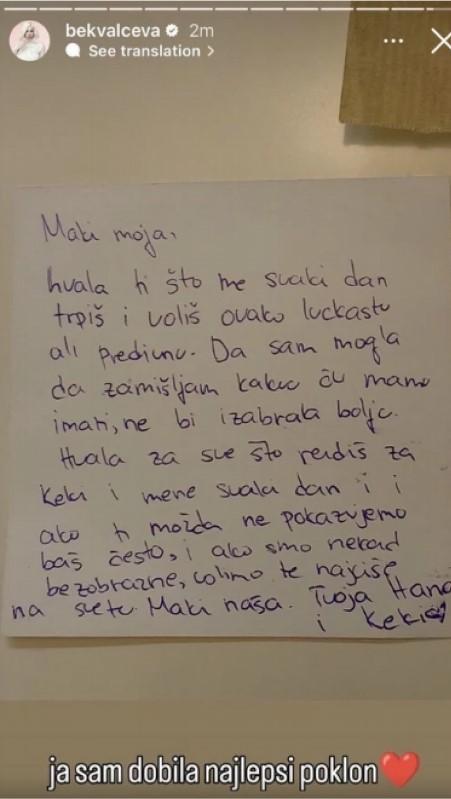 bekvalceva 2m
See translation >
Maki moja,
hvala ti što me svaki dan
trpiš i voliš ovako luckastu
ali predivnu. Da sam mogla
da zamišljam kakvu ću mamu
imati, ne bi izabrala bolje.
Hvala za sve što radiš za
Keki i mene svaki dan i i
ako ti možda ne pokazujemo
baš često, i ako smo nekad
bezobrazne, volimo te najviše
na svetu. Maki naša. Tvoja Hana
i Keki
ja sam dobila najlepsi poklon❤️